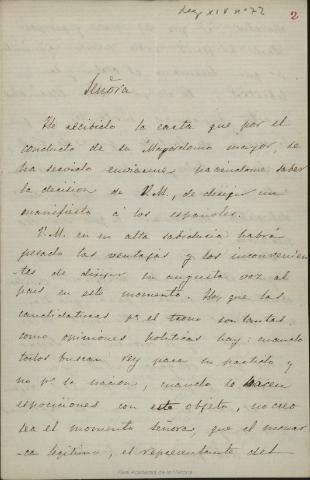 Leg XIV nº 72
2
Señora
He recibido la carta que por el
conducto de su Mayordomo mayor, se
ha servido enviarme haciendome saber
la decision de V.M., de dirigir un
manifiesto á los españoles.
V.M. en su alta sabiduria habrá
pesado las ventajas y los inconvenien
tes de dirigir su augusta voz al
pais en este momento. Hoy que las
candidaturas pª el trono son tantas
como opiniones politicas hay: cuando
todos buscan rey para su partido y
no pª la nacion, cuando se hacen
esposiciones con este objeto, no creo
sea el momento señora, que el monar
ca legitimo, el representante del
Real Academia de la Historia